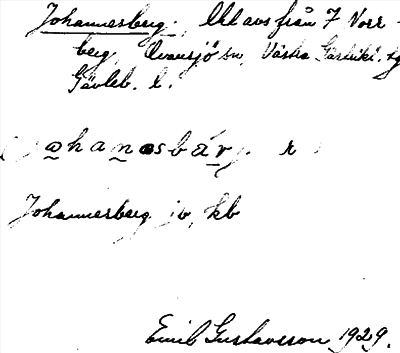 Johannesberg, Utl avs från 7 Vorr-
berg, Ovansjö sn, Västra Gästrikl. tg
Gävleb. l.
johanesbár̡j. r
Johannesberg jv, kb
Emil Gustavsson 1929.